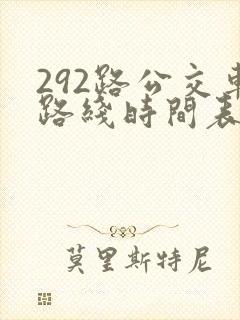 292路公交車
路綫時間表
莫里斯特尼